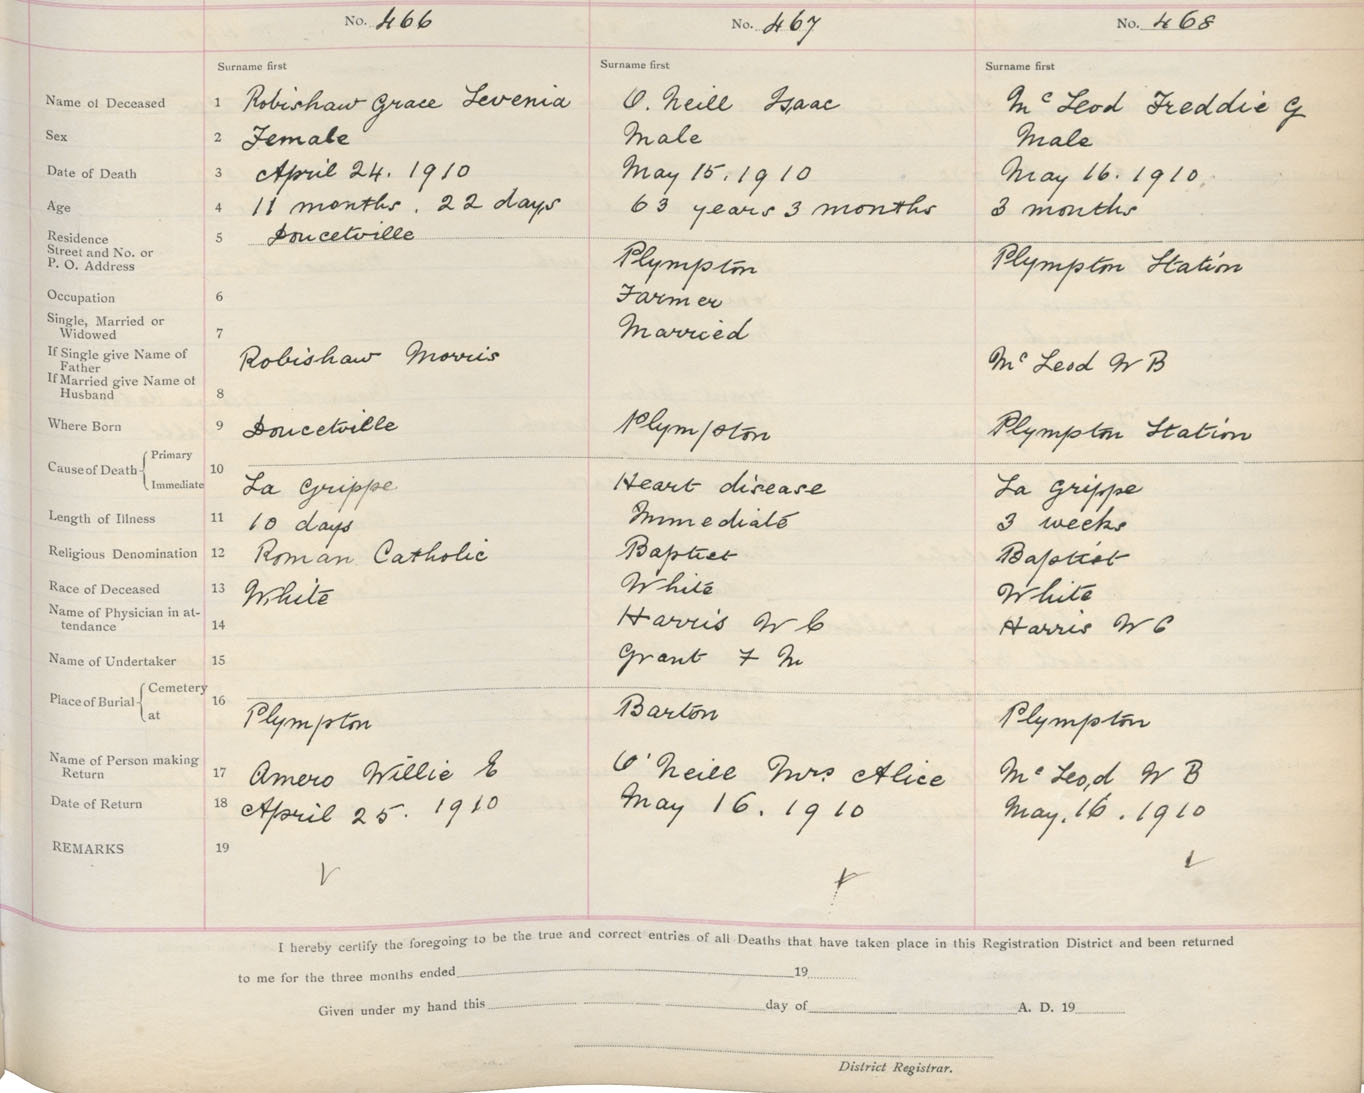 No. 466 No. 467 No. 468
Surname first Surname first Surname first
Name of Deceased 1 Robishaw Grace Levenia O. Neill Isaac Mc Leod Freddie G
Sex 2 Female Male Male
Date of Death 3 April 24. 1910 May 15. 1910 May 16. 1910
Age 4 11 months. 22 days 63 years 3 months 3 months
Residence 5 Doucetville
Street and No. or
P. O. Address Plympton Plympton Station
Occupation 6 Farmer
Single, Married or
Widowed 7 Married
If Single give Name of
Father Robishaw Morris Mc Leod W B
If Married give Name of
Husband 8
Where Born 9 Doucetville Plympton Plympton Station
Cause of Death Primary
10
Immediate La Grippe Heart disease La Grippe
Length of Illness 11 10 days Immediate 3 weeks
Religious Denomination 12 Roman Catholic Baptist Baptist
Race of Deceased 13 White White White
Name of Physician in at-
tendance 14 Harris W C Harris W C
Name of Undertaker 15 Grant F M
Place of Burial Cemetery
16
at Plympton Barton Plympton
Name of Person making
Return 17 Amero Willie E O'Neill Mrs Alice Mc Leod W B
Date of Return 18 April 25. 1910 May 16. 1910 May. 16. 1910
REMARKS 19
I hereby certify the foregoing to be the true and correct entries of all Deaths that have taken place in this Registration District and been returned
to me for the three months ended 19
Given under my hand this day of A. D. 19
District Registrar.